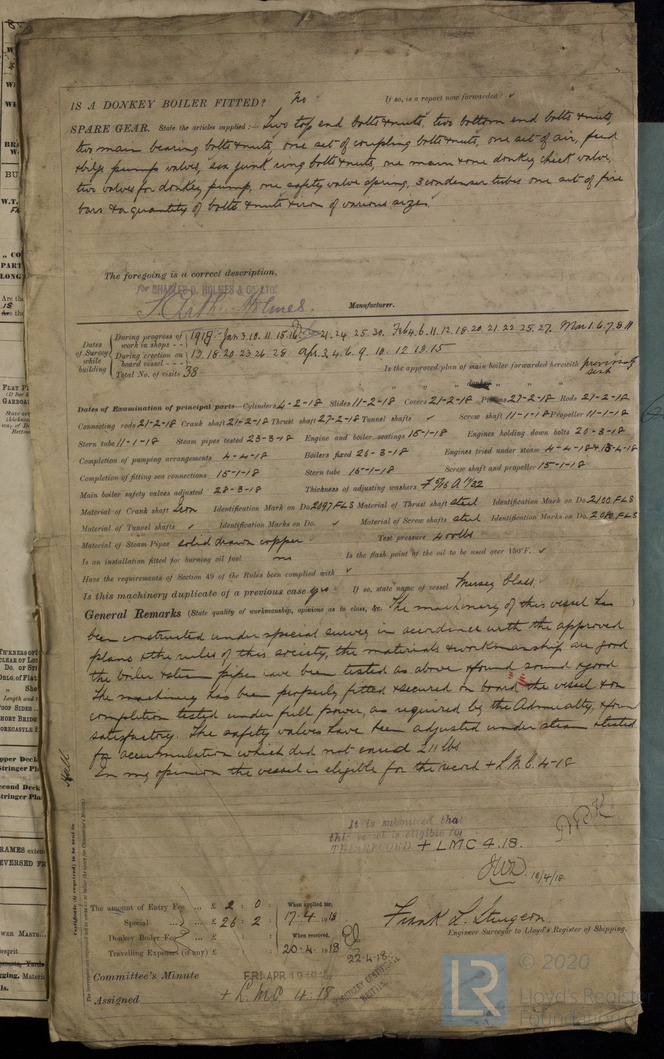 IS A DONKEY BOILER FITTED? No If so, is a report now forwarded? ✓
SPARE GEAR. State the articles supplied:— Two top end bolts & nuts, two bottom end bolts & nuts,
two main bearing bolts & nuts, one set of coupling bolts & nuts, one set of air, feed
& bilge pump valves, six junk ring bolts & nuts, one main & one donkey check valve,
two valves for donkey pump, one safety valve spring, 3 condenser tubes one set of fire
bars & a quantity of bolts & nuts & iron of various sizes.
The foregoing is a correct description,
for CHARLES D. HOLMES & CO. LTD.
Holmes. Manufacturer.
Dates of Survey while building
During progress of work in shops - - 1918:- Jan 3. 10. 11. 15. 16. 21. 24. 25. 30. Feb 4. 6. 11. 12. 18. 20. 21. 22. 25. 27. Mar 1. 6. 7. 8. 11
During erection on board vessel - - - 13. 18. 20. 23. 26. 28. Apr. 3. 4. 6. 9. 10. 12 13. 15
Total No. of visits 38
Is the approved plan of main boiler forwarded herewith previously sent
" " " donkey " " "
Dates of Examination of principal parts—Cylinders 4-2-18 Slides 11-2-18 Covers 21-2-18 Pistons 27-2-18 Rods 21-2-18
Connecting rods 21-2-18 Crank shaft 21-2-18 Thrust shaft 27-2-18 Tunnel shafts ✓ Screw shaft 11-1-18 Propeller 11-1-18
Stern tube 11-1-18 Steam pipes tested 23-3-18 Engine and boiler seatings 15-1-18 Engines holding down bolts 20-3-18
Completion of pumping arrangements 4-4-18 Boilers fixed 26-3-18 Engines tried under steam 4-4-18 & 13-4-18
Completion of fitting sea connections 15-1-18 Stern tube 15-1-18 Screw shaft and propeller 15-1-18
Main boiler safety valves adjusted 28-3-18 Thickness of adjusting washers
Material of Crank shaft Iron Identification Mark on Do. 2097 FLS Material of Thrust shaft steel Identification Mark on Do. 2100 FLS
Material of Tunnel shafts ✓ Identification Marks on Do. ✓ Material of Screw shafts steel Identification Marks on Do. 2080 FLS
Material of Steam Pipes solid drawn copper Test pressure 400 lbs
Is an installation fitted for burning oil fuel no Is the flash point of the oil to be used over 150°F. ✓
Have the requirements of Section 49 of the Rules been complied with ✓
Is this machinery duplicate of a previous case yes If so, state name of vessel Mersey Class.
General Remarks (State quality of workmanship, opinions as to class, &c. The machinery of this vessel has
been constructed under special survey in accordance with the approved
plans & the rules of this society, the materials & workmanship are good
the boiler & steam pipes have been tested as above & found sound & good
The machinery has been properly fitted & secured on board the vessel & on
completion tested under full power, as required by the Admiralty, & found
satisfactory. The safety valves have been adjusted under steam & tested
for accumulation which did not exceed 211 lbs
In my opinion the vessel is eligible for the record + L.M.C. 4-18
Hull
Certificate (if required) to be sent to
It is submitted that
this vessel is eligible for
THE RECORD + LMC 4.18.
18/4/18
The amount of Entry Fee ... £ 2 : 0 : When applied for,
Special ... £ 26 : 2 : 17.4.1918
Donkey Boiler Fee ... £ : : When received,
Travelling Expenses (if any) £ : : 20.4.1918
22.4.18.
Frank L. Sturgeon
Engineer Surveyor to Lloyd's Register of Shipping.
Committee's Minute FRI. APR. 19 1918
Assigned + L.M.C 4.18
LR
© 2020
Lloyd's Register
Foundation